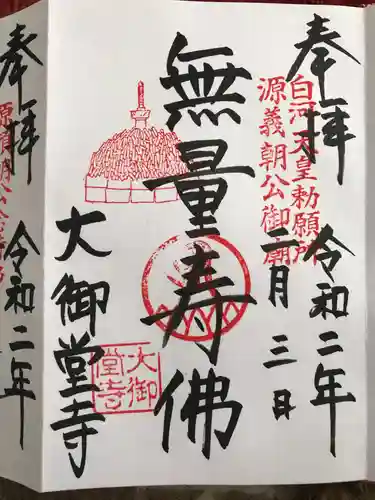 奉拝
白河天皇勅願所
源義朝公御廟
令和二年
二月三日
無量寿佛
大御堂寺
大御堂寺
奉拝
令和二年